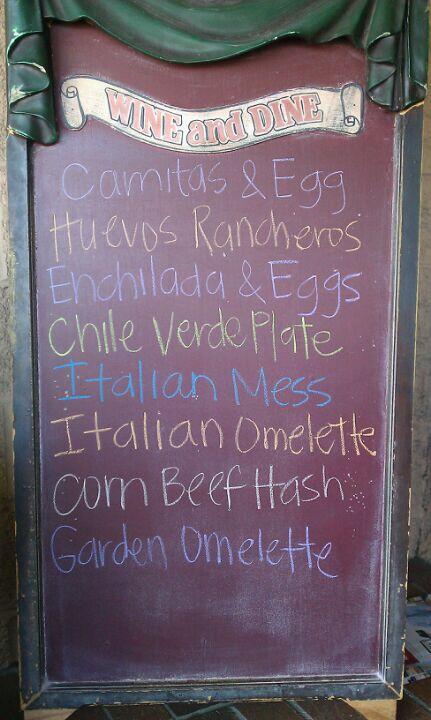 WINE and DINE
Carnitas & Egg
Huevos Rancheros
Enchilada & Eggs
Chile Verde Plate
Italian Mess
Italian Omelette
Corn Beef Hash
Garden Omelette